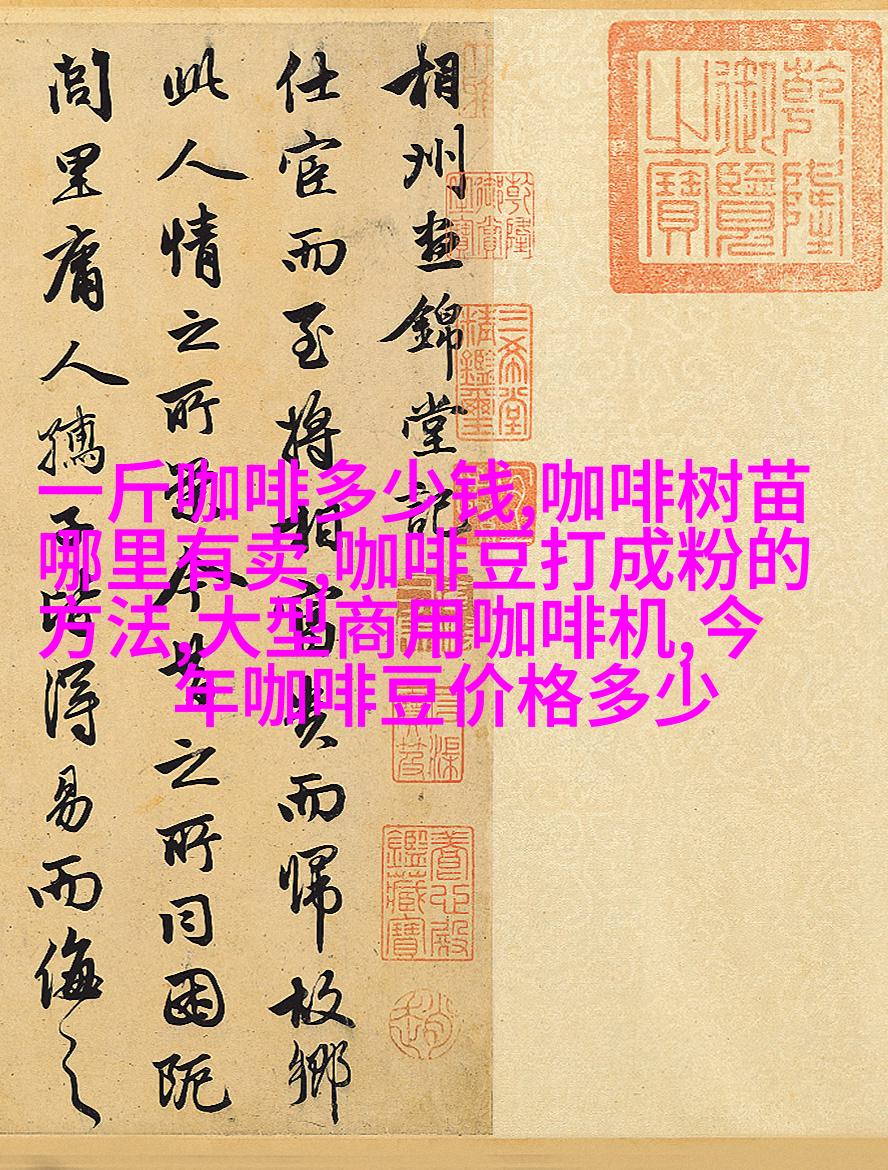 乾隆御覽之寶
相州晝錦堂記
三希堂精鑑璽
養心殿鑑藏寶
仕宦而至將相富貴而歸故鄉
此人情之所榮今昔之所同困阨
閭里庸人孺子皆得易而侮之
一斤咖啡多少钱,咖啡树苗
哪里有卖,咖啡豆打成粉的
方法,大型商用咖啡机,今
年咖啡豆价格多少